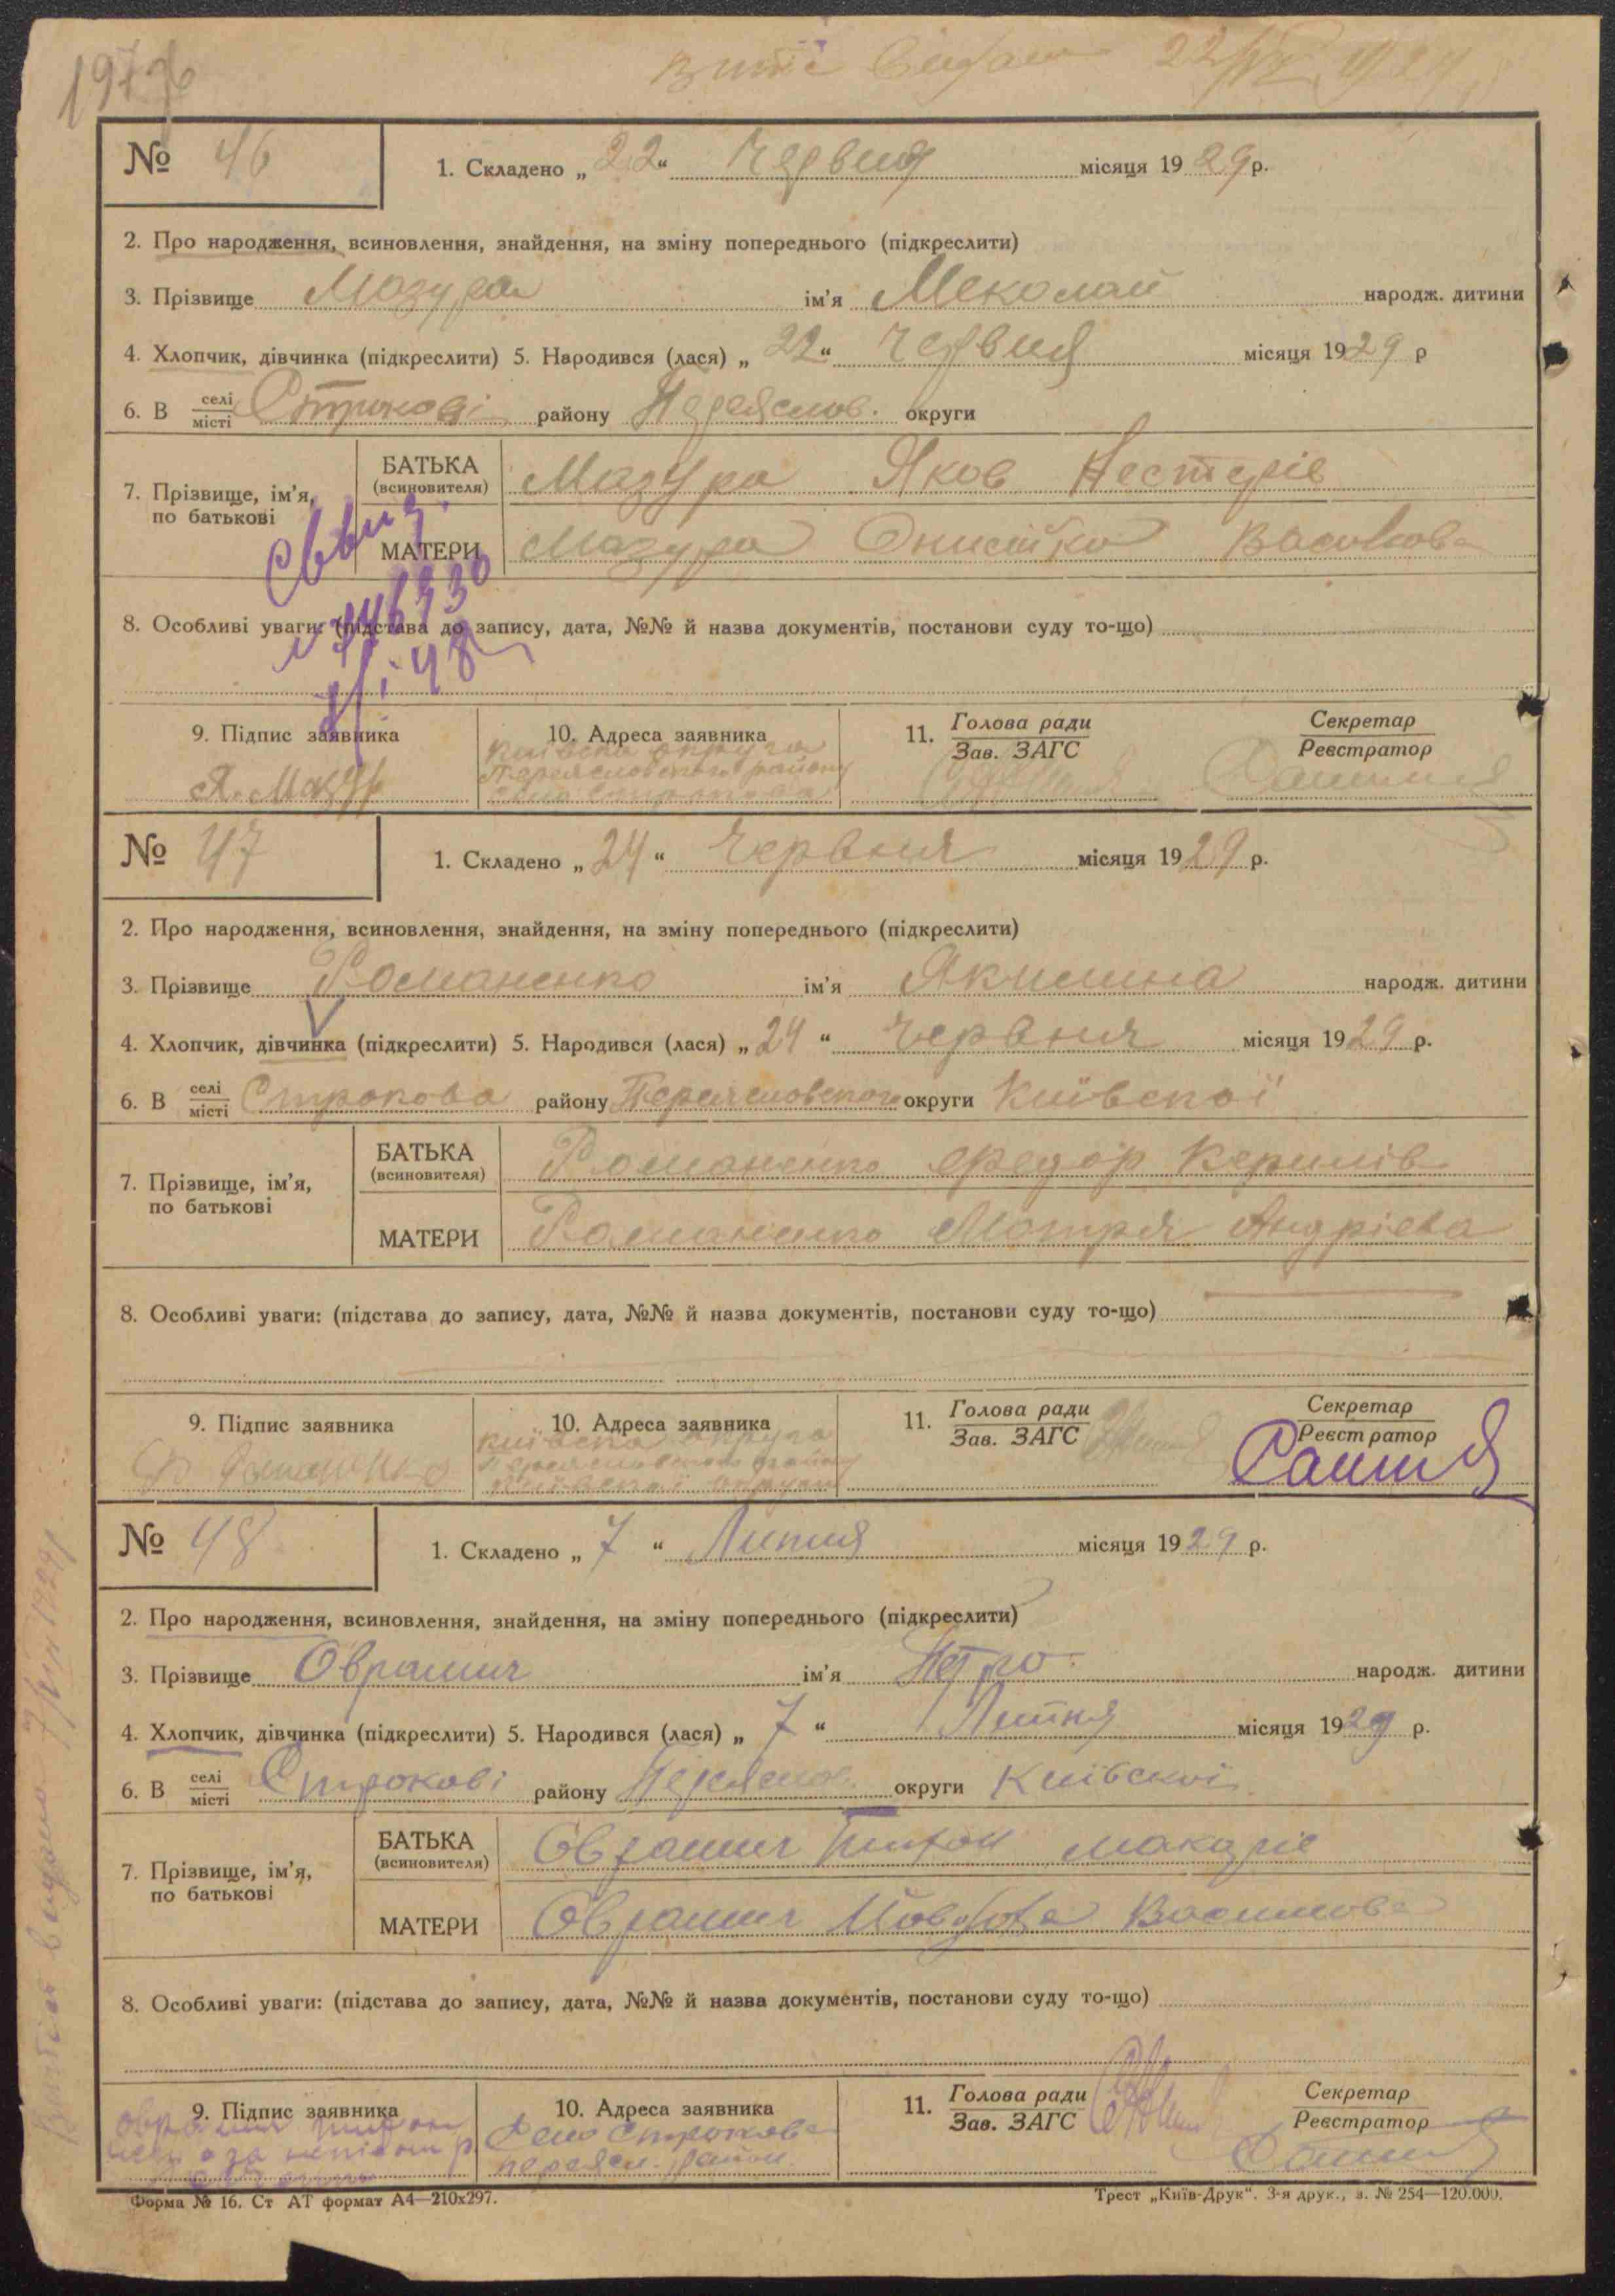 197
№ 46
1. Складено „22“ Червня місяця 1929 р.
2. Про народження, всиновлення, знайдення, на зміну попереднього (підкреслити)
3. Прізвище Мазура ім'я Меколай народж. дитини
4. Хлопчик, дівчинка (підкреслити) 5. Народився (лася) „22“ Червня місяця 1929 р
6. В селі місті Строкові району Переяслов. округи
7. Прізвище, ім'я, по батькові
БАТЬКА (всиновителя) Мазура Яков Нестерів
МАТЕРИ Мазура Онисійка Васильова
8. Особливі уваги: (підстава до запису, дата, №№ й назва документів, постанови суду то-що)
9. Підпис заявника
Я. Мазур
10. Адреса заявника
Київска округа
Переясловського району
село Строкова
11. Голова ради
Зав. ЗАГС
Секретар
Реєстратор
№ 47
1. Складено „24“ Червня місяця 1929 р.
2. Про народження, всиновлення, знайдення, на зміну попереднього (підкреслити)
3. Прізвище Романенко ім'я Якилина народж. дитини
4. Хлопчик, дівчинка (підкреслити) 5. Народився (лася) „24“ Червня місяця 1929 р.
6. В селі місті Строкова району Переясловского округи Київскої
7. Прізвище, ім'я, по батькові
БАТЬКА (всиновителя) Романенко Федор Керилів
МАТЕРИ Романенко Мотря Андрієва
8. Особливі уваги: (підстава до запису, дата, №№ й назва документів, постанови суду то-що)
9. Підпис заявника
Ф Романенко
10. Адреса заявника
Київска округа
Переясловского району
Київскої округи
11. Голова ради
Зав. ЗАГС
Секретар
Реєстратор
№ 48
1. Складено „7“ Липня місяця 1929 р.
2. Про народження, всиновлення, знайдення, на зміну попереднього (підкреслити)
3. Прізвище Оврашич ім'я Петро народж. дитини
4. Хлопчик, дівчинка (підкреслити) 5. Народився (лася) „7“ Липня місяця 1929 р.
6. В селі місті Строкові району Переяслов. округи Київскої
7. Прізвище, ім'я, по батькові
БАТЬКА (всиновителя) Оврашич Тихон Макаріє
МАТЕРИ Оврашич Василова
8. Особливі уваги: (підстава до запису, дата, №№ й назва документів, постанови суду то-що)
9. Підпис заявника
10. Адреса заявника
Село Строкова
переясл. район.
11. Голова ради
Зав. ЗАГС
Секретар
Реєстратор
Форма № 16. Ст АТ формат А4—210х297.
Трест „Київ-Друк“. 3-я друк., з. № 254—120.000.